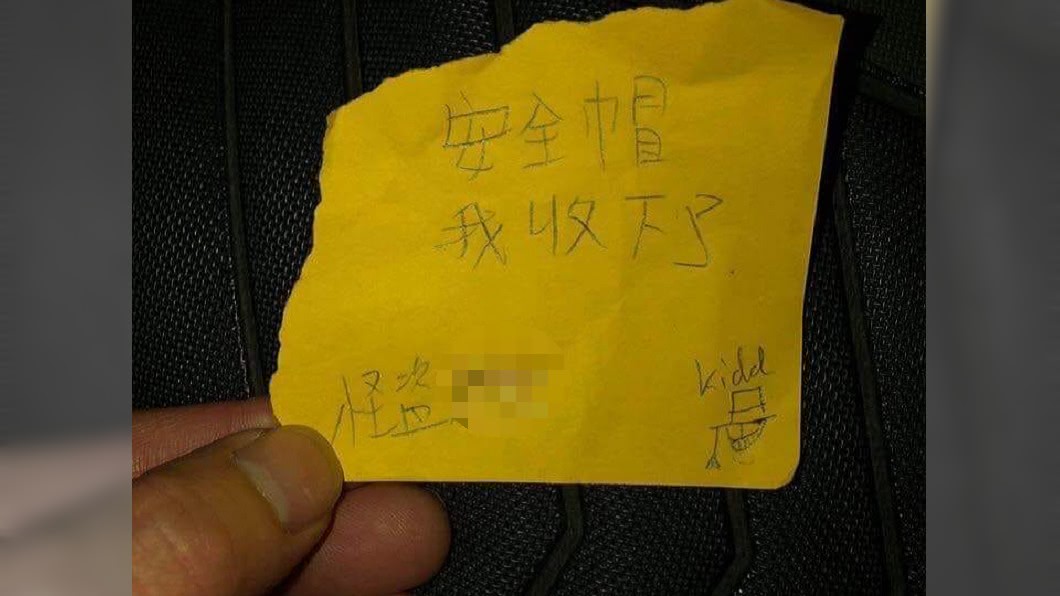 安全帽
我收下了.
怪盜
kidd